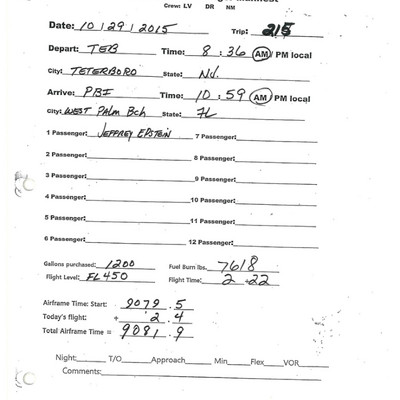 Crew: LV DR NM
Date: 10/29/2015 Trip: 215
Depart: TEB Time: 8:36 AM/PM local
City: TETERBORO State: NJ.
Arrive: PBI Time: 10:59 AM/PM local
City: WEST PALM Bch State: FL
1 Passenger: JEFFREY EPSTEIN 7 Passenger:
2 Passenger: 8 Passenger:
3 Passenger: 9 Passenger:
4 Passenger: 10 Passenger:
5 Passenger: 11 Passenger:
6 Passenger: 12 Passenger:
Gallons purchased: 1200 Fuel Burn lbs. 7618
Flight Level: FL450 Flight Time: 2 + 22
Airframe Time: Start: 9079.5
Today's flight: + 2.4
Total Airframe Time = 9081.9
Night: T/O Approach Min Flex VOR
Comments: